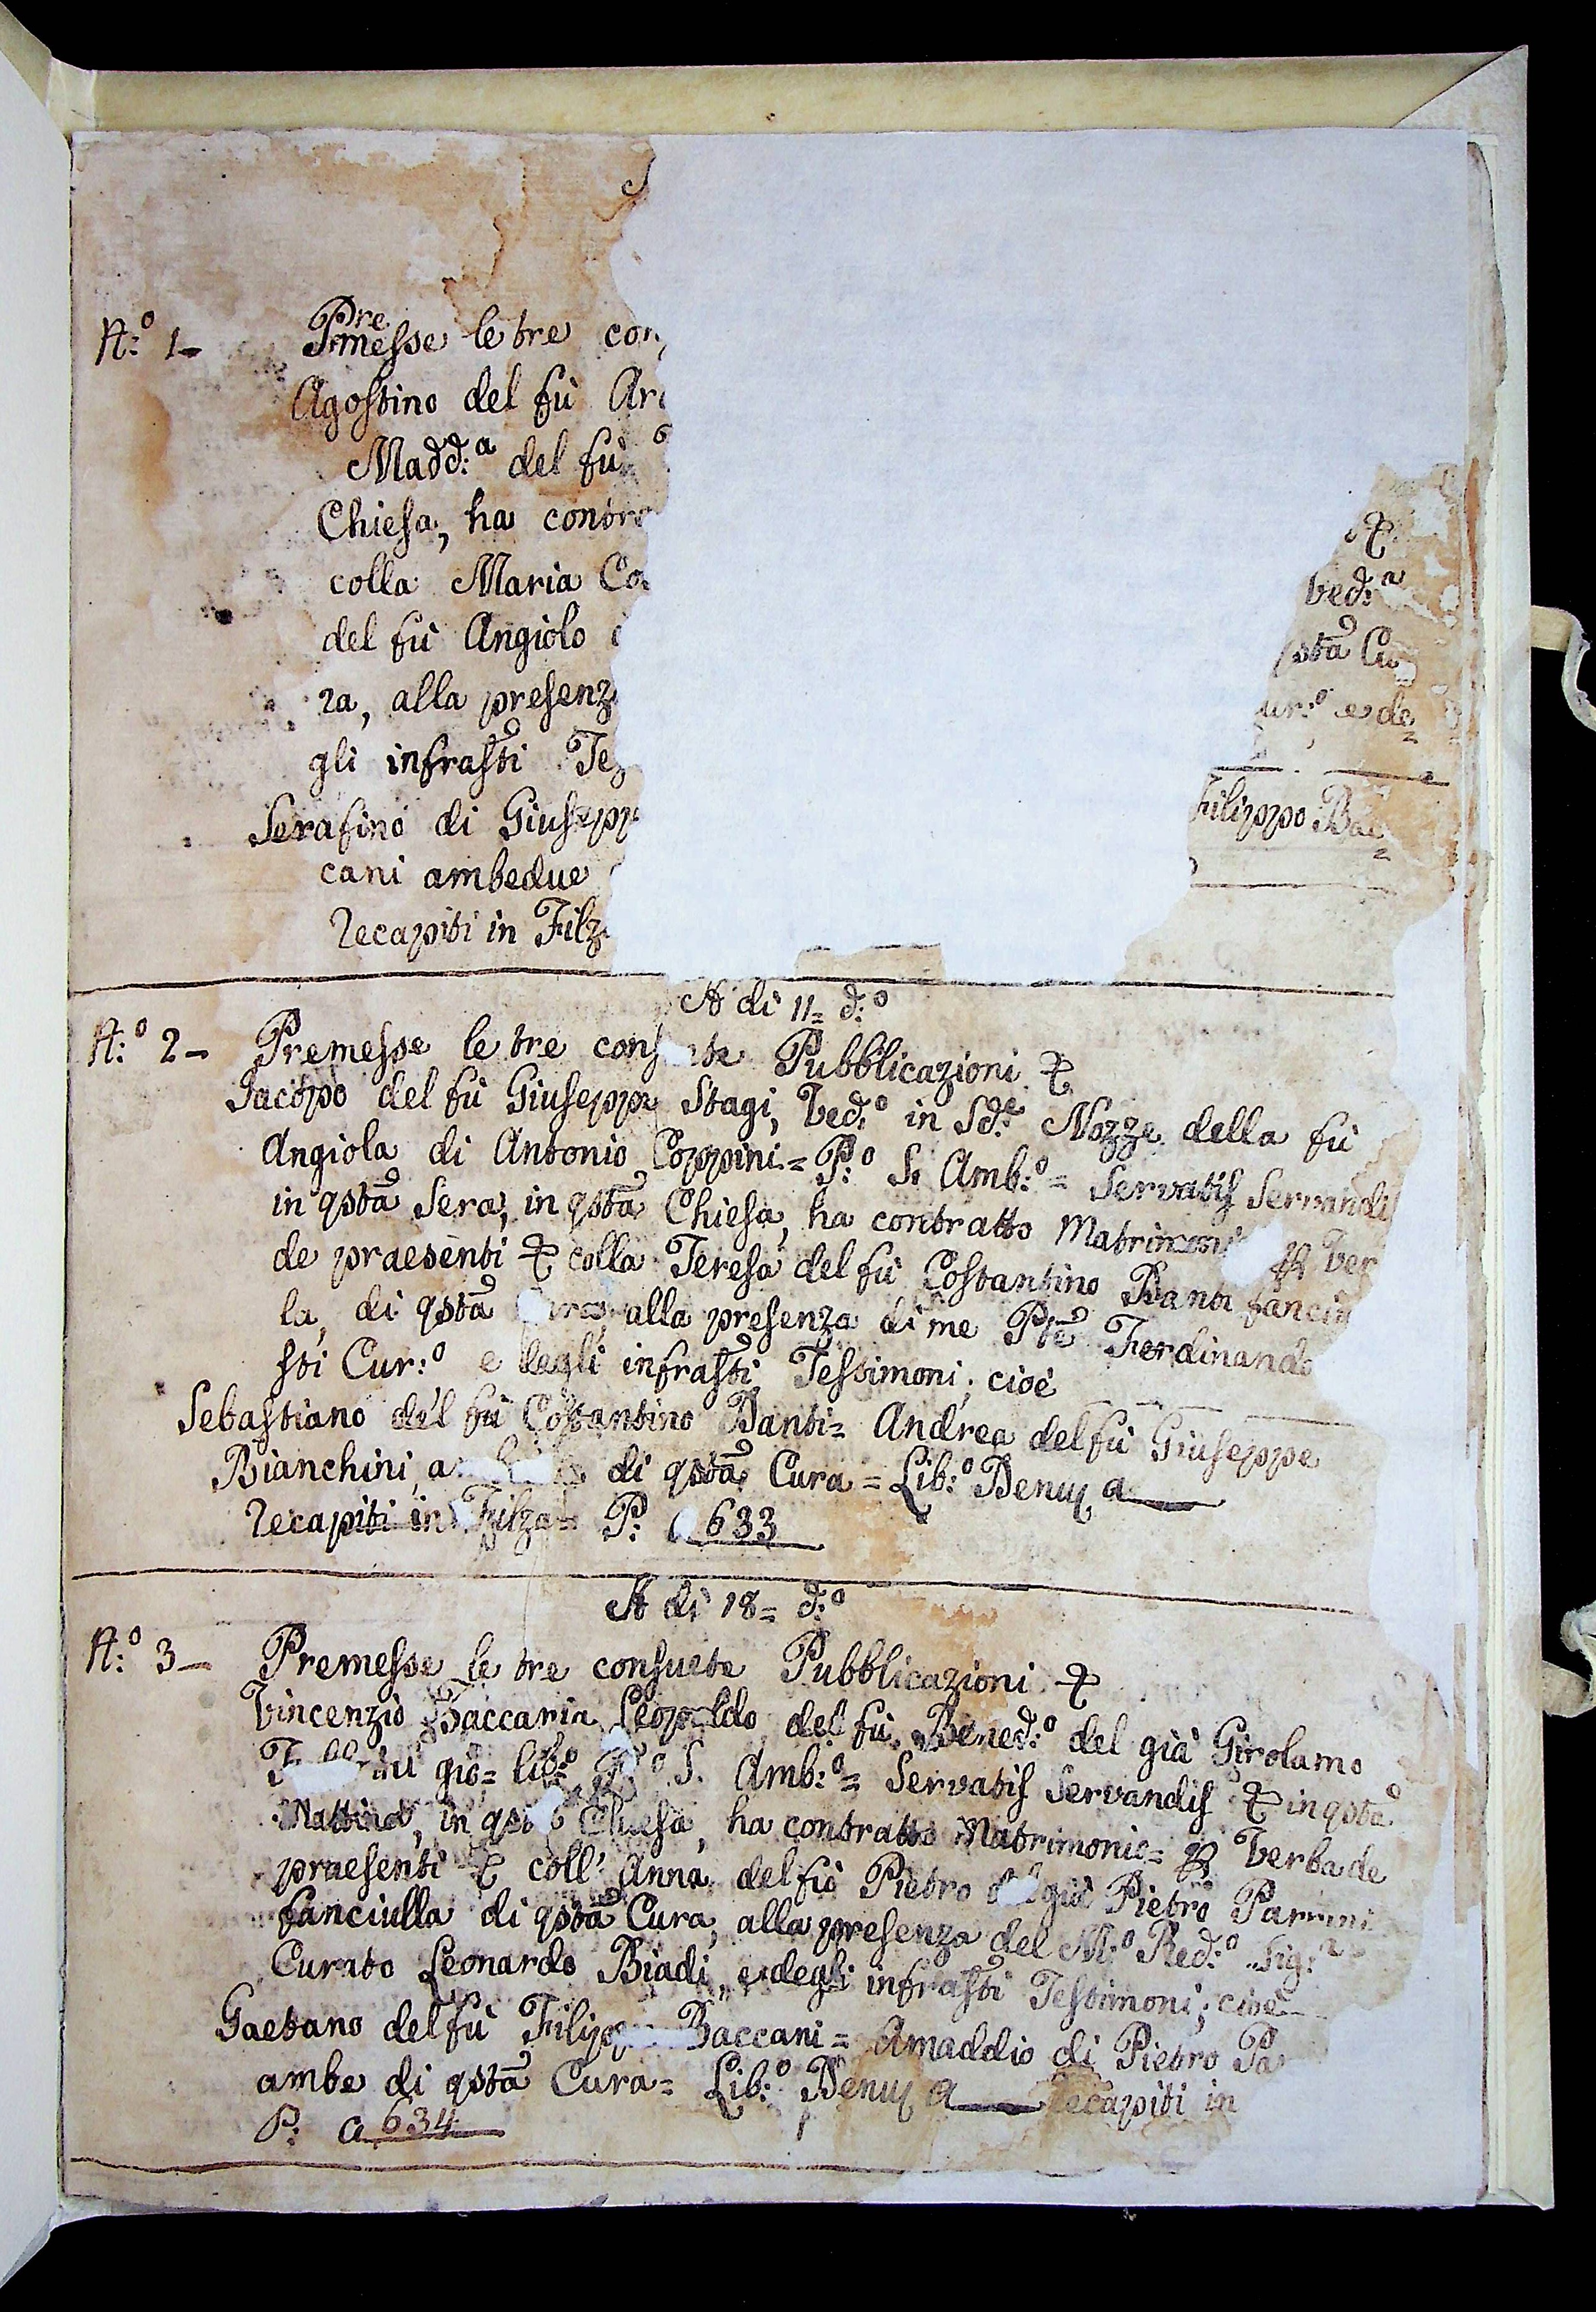 N:º 1 - Premesse le tre con
Agostino del fù
Madd:ª del fù
Chiesa, ha contra
&
colla Maria
Ved:ª
del fù Angiolo
qsta Cu
ra, alla presenz
Cur:º e de=
gli infrasti Te
Serafino di Giusepp
Filippo Bac=
cani ambedue
Recapiti in Filz
A di 11= d:º
N:º 2 - Premesse le tre consuete Pubblicazioni &
Jacopo del fù Giuseppe Stagi, Ved:º in Sde Nozze della fù
Angiola di Antonio Coppini = P:º S. Amb:º = Servatis Servandis
in qsta Sera, in qsta Chiesa, ha contratto Matrimoni p Ver
de praesenti & colla Teresa del fù Costantino Danti fanciu
la, di qsta Cura, alla presenza di me Pte Ferdinando
sti Cur:º e degli infrasti Testimoni; cioè
Sebastiano del fù Costantino Danti = Andrea del fù Giuseppe
Bianchini, di qsta Cura = Lib:º Denuz a
Recapiti in Filza = P: a 633
A di 18= d:º
N:º 3 - Premesse le tre consuete Pubblicazioni &
Vincenzio Zaccaria Leopoldo del fù Bened:º del già Girolamo
gio= lib:º P:º S. Amb:º = Servatis Servandis & in qsta
Mattina, in qsta Chiesa, ha contratto Matrimonio = p Verba de
praesenti & coll' Anna del fù Pietro del già Pietro Parrini
fanciulla di qsta Cura, alla presenza del M:º Red:º Sig:r
Curato Leonardo Biadi, e degli infrasti Testimoni; cioè
Gaetano del fù Filippo Baccani = Amaddio di Pietro Pa
ambe di qsta Cura = Lib:º Denuz a Recapiti in
P: a 634